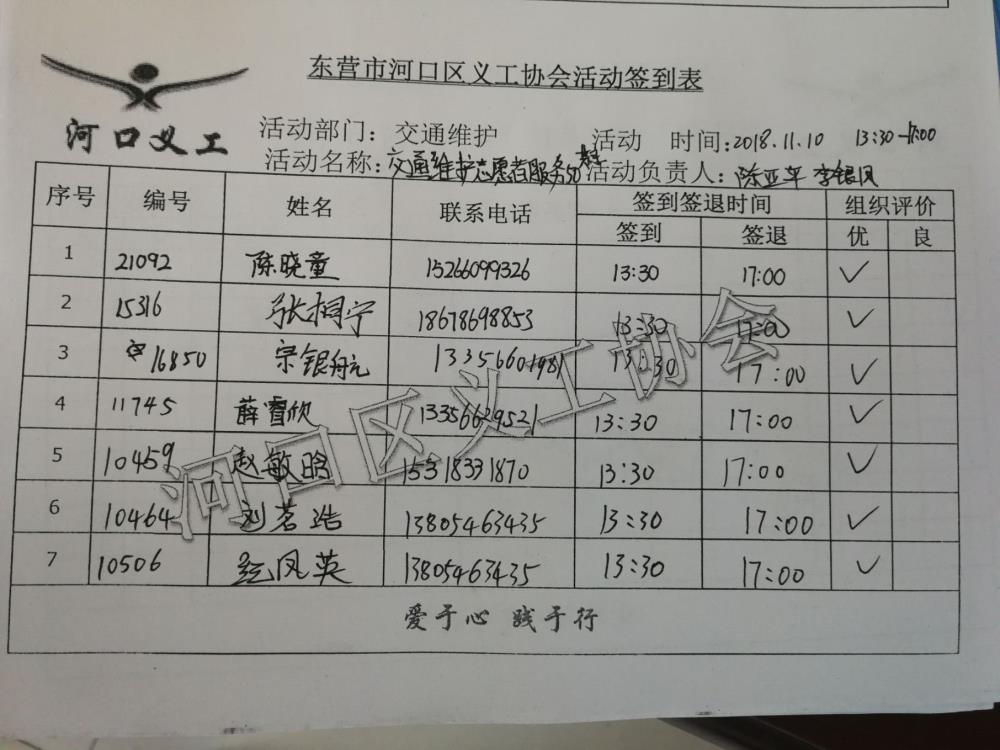 东营市河口区义工协会活动签到表
河口义工
活动部门：交通维护 活动 时间:2018.11.10 13:30-17:00
活动名称:交通维护志愿者服务活动 活动负责人：陈亚军 李银凤
序号 编号 姓名 联系电话 签到签退时间 组织评价
签到 签退 优 良
1 21092 陈晓童 15266099326 13:30 17:00 ✓
2 15316 张桐宁 18678698853 13:30 17:00 ✓
3 16850 宗银舵 13356601981 13:30 17:00 ✓
4 11745 薛睿欣 13356629521 13:30 17:00 ✓
5 10459 赵敏晗 15318331870 13:30 17:00 ✓
6 10464 刘茗浩 13805463435 13:30 17:00 ✓
7 10506 纪凤英 13805463435 13:30 17:00 ✓
爱于心 践于行
河口区义工协会